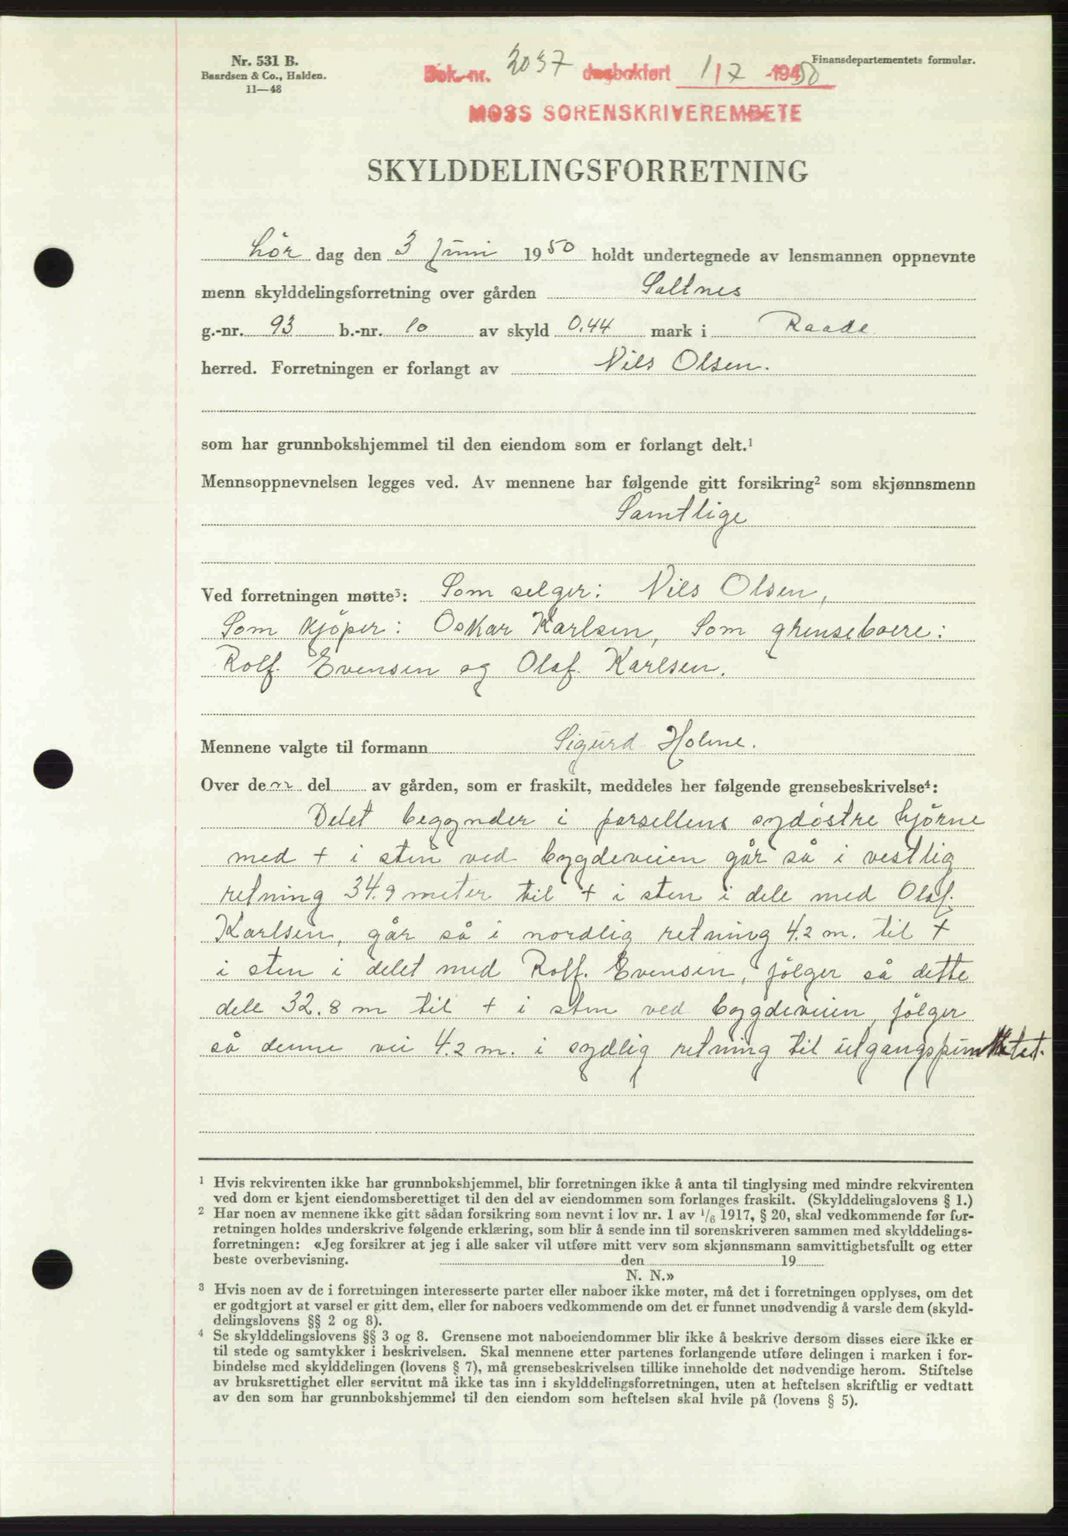 Nr. 531 B.
Baardsen & Co., Halden.
11—48
Dok.-nr. 2037 dagbokført 1/7 -1950
Finansdepartementets formular.
MOSS SORENSKRIVEREMBETE
SKYLDDELINGSFORRETNING
Lør dag den 3 Juni 1950 holdt undertegnede av lensmannen oppnevnte
menn skylddelingsforretning over gården Saltnes
g.-nr. 93 b.-nr. 10 av skyld 0,44 mark i Raade
herred. Forretningen er forlangt av Nils Olsen.
som har grunnbokshjemmel til den eiendom som er forlangt delt.¹
Mennsoppnevnelsen legges ved. Av mennene har følgende gitt forsikring² som skjønnsmenn
Samtlige
Ved forretningen møtte³: Som selger: Nils Olsen,
Som kjøper: Oskar Karlsen, Som grenseboere:
Rolf. Evensen og Olaf. Karlsen.
Mennene valgte til formann Sigurd Holme.
Over den del av gården, som er fraskilt, meddeles her følgende grensebeskrivelse⁴:
Delet begynder i parsellens sydöstre hjörne
med + i sten ved bygdeveien går så i vestlig
retning 34.9 meter til + i sten i dele med Olaf.
Karlsen, går så i nordlig retning 4.2 m. til +
i sten i delet med Rolf. Evensen, fölger så dette
dele 32.8 m til + i sten ved bygdeveien, fölger
så denne vei 4.2 m. i sydlig retning til utgangspunktet.
¹ Hvis rekvirenten ikke har grunnbokshjemmel, blir forretningen ikke å anta til tinglysing med mindre rekvirenten
ved dom er kjent eiendomsberettiget til den del av eiendommen som forlanges fraskilt. (Skylddelingslovens § 1.)
² Har noen av mennene ikke gitt sådan forsikring som nevnt i lov nr. 1 av ¹/₆ 1917, § 20, skal vedkommende før for-
retningen holdes underskrive følgende erklæring, som blir å sende inn til sorenskriveren sammen med skylddelings-
forretningen: «Jeg forsikrer at jeg i alle saker vil utføre mitt verv som skjønnsmann samvittighetsfullt og etter
beste overbevisning. den 19
N. N.»
³ Hvis noen av de i forretningen interesserte parter eller naboer ikke møter, må det i forretningen opplyses, om det
er godtgjort at varsel er gitt dem, eller for naboers vedkommende om det er funnet unødvendig å varsle dem (skyld-
delingslovens §§ 2 og 8).
⁴ Se skylddelingslovens §§ 3 og 8. Grensene mot naboeiendommer blir ikke å beskrive dersom disses eiere ikke er
til stede og samtykker i beskrivelsen. Skal mennene etter partenes forlangende utføre delingen i marken i for-
bindelse med skylddelingen (lovens § 7), må grensebeskrivelsen tillike inneholde det nødvendige herom. Stiftelse
av bruksrettighet eller servitut må ikke tas inn i skylddelingsforretningen, uten at heftelsen skriftlig er vedtatt
av den som har grunnbokshjemmel til den eiendom som heftelsen skal hvile på (lovens § 5).